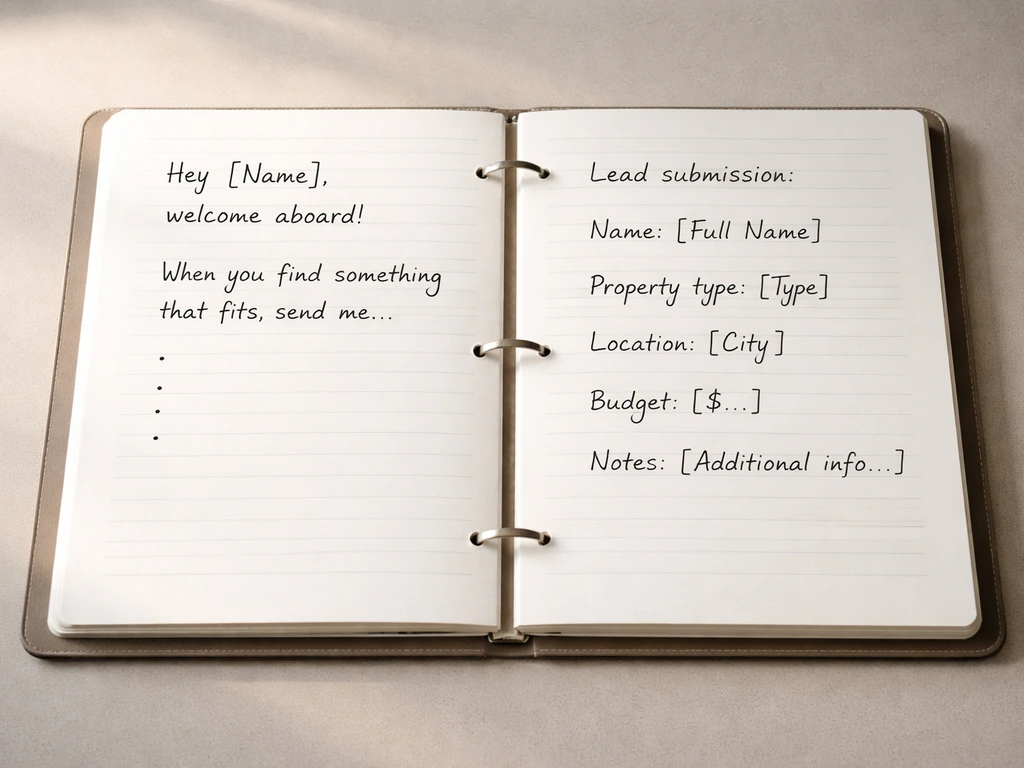 Hey [Name],
welcome aboard!
When you find something
that fits, send me...
•
•
•
•
Lead submission:
Name: [Full Name]
Property type: [Type]
Location: [City]
Budget: [$...]
Notes: [Additional info...]